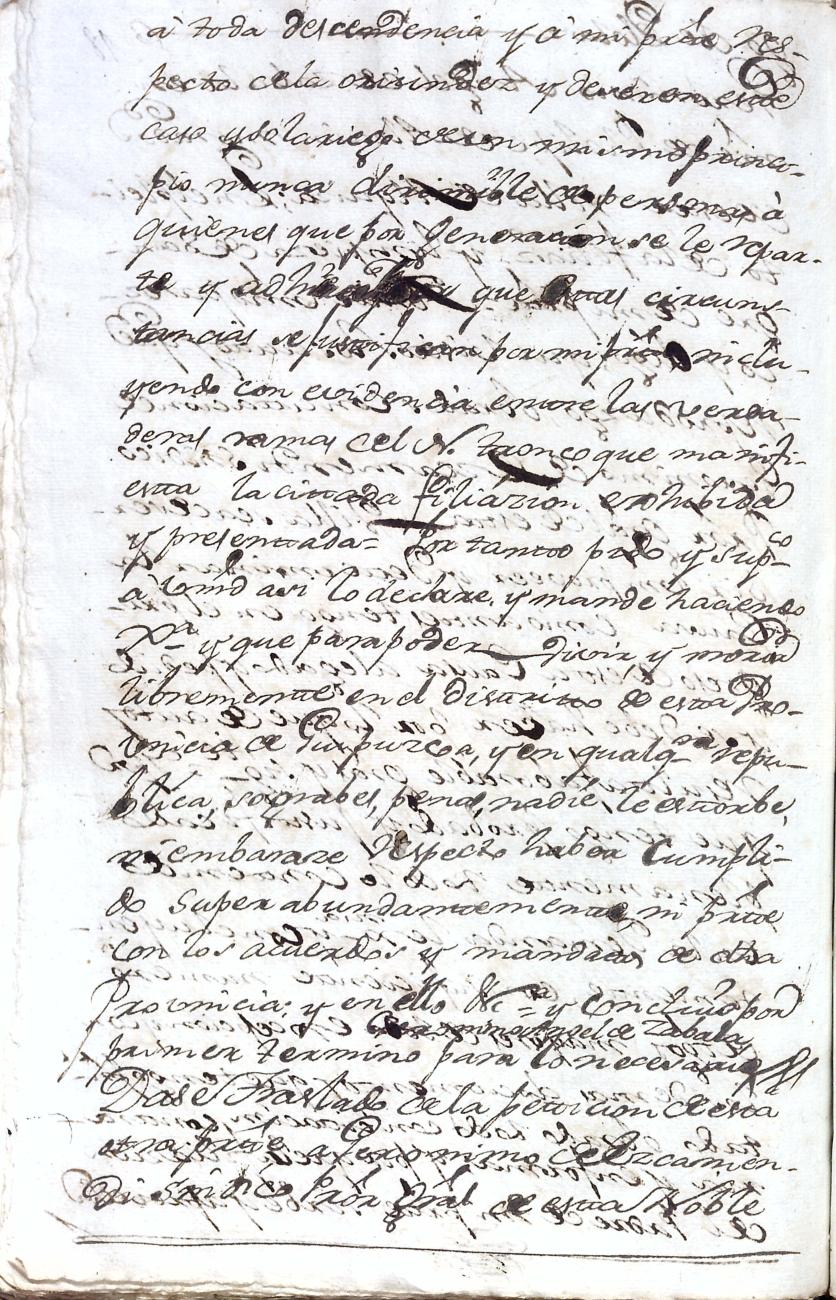 à toda descendencia y à mi p.te res-
pecto de la orixindez y de ver en este
caso y solariego de un mismo princi-
pio nunca dirimible de personas à
quienes que por Generacion se le repar-
te y y que estas circuns-
tancias se justifican por mi p.te inclu-
yendo con evidencia entre las verda-
deras ramas del N. tronco que manifi-
esta la cittada filiazion exhibida
y presentada= Por tanto pido y sup.co
à Vmd asi lo declare, y mande haciendo
y que para poder vivir, y morar
libremente en el disttrito de esta Pro-
vincia de Guipuzcoa, y en qualq.ra repu-
blica, so grabes, penas, nadie, le estorbe,
ni embaraze respecto haber Cumpli-
do superabundantemente, mi p.te
con los acuerdos y mandatos de dha
Provincia; y en ello &c.= y Concluio por
Geronimo Angel de Zabala
primer termino para lo necesario
Dase Traslado de la peticion de esta
otra p.te a Geronimo de Orcamen-
di sindico Pror Gral de esta Noble